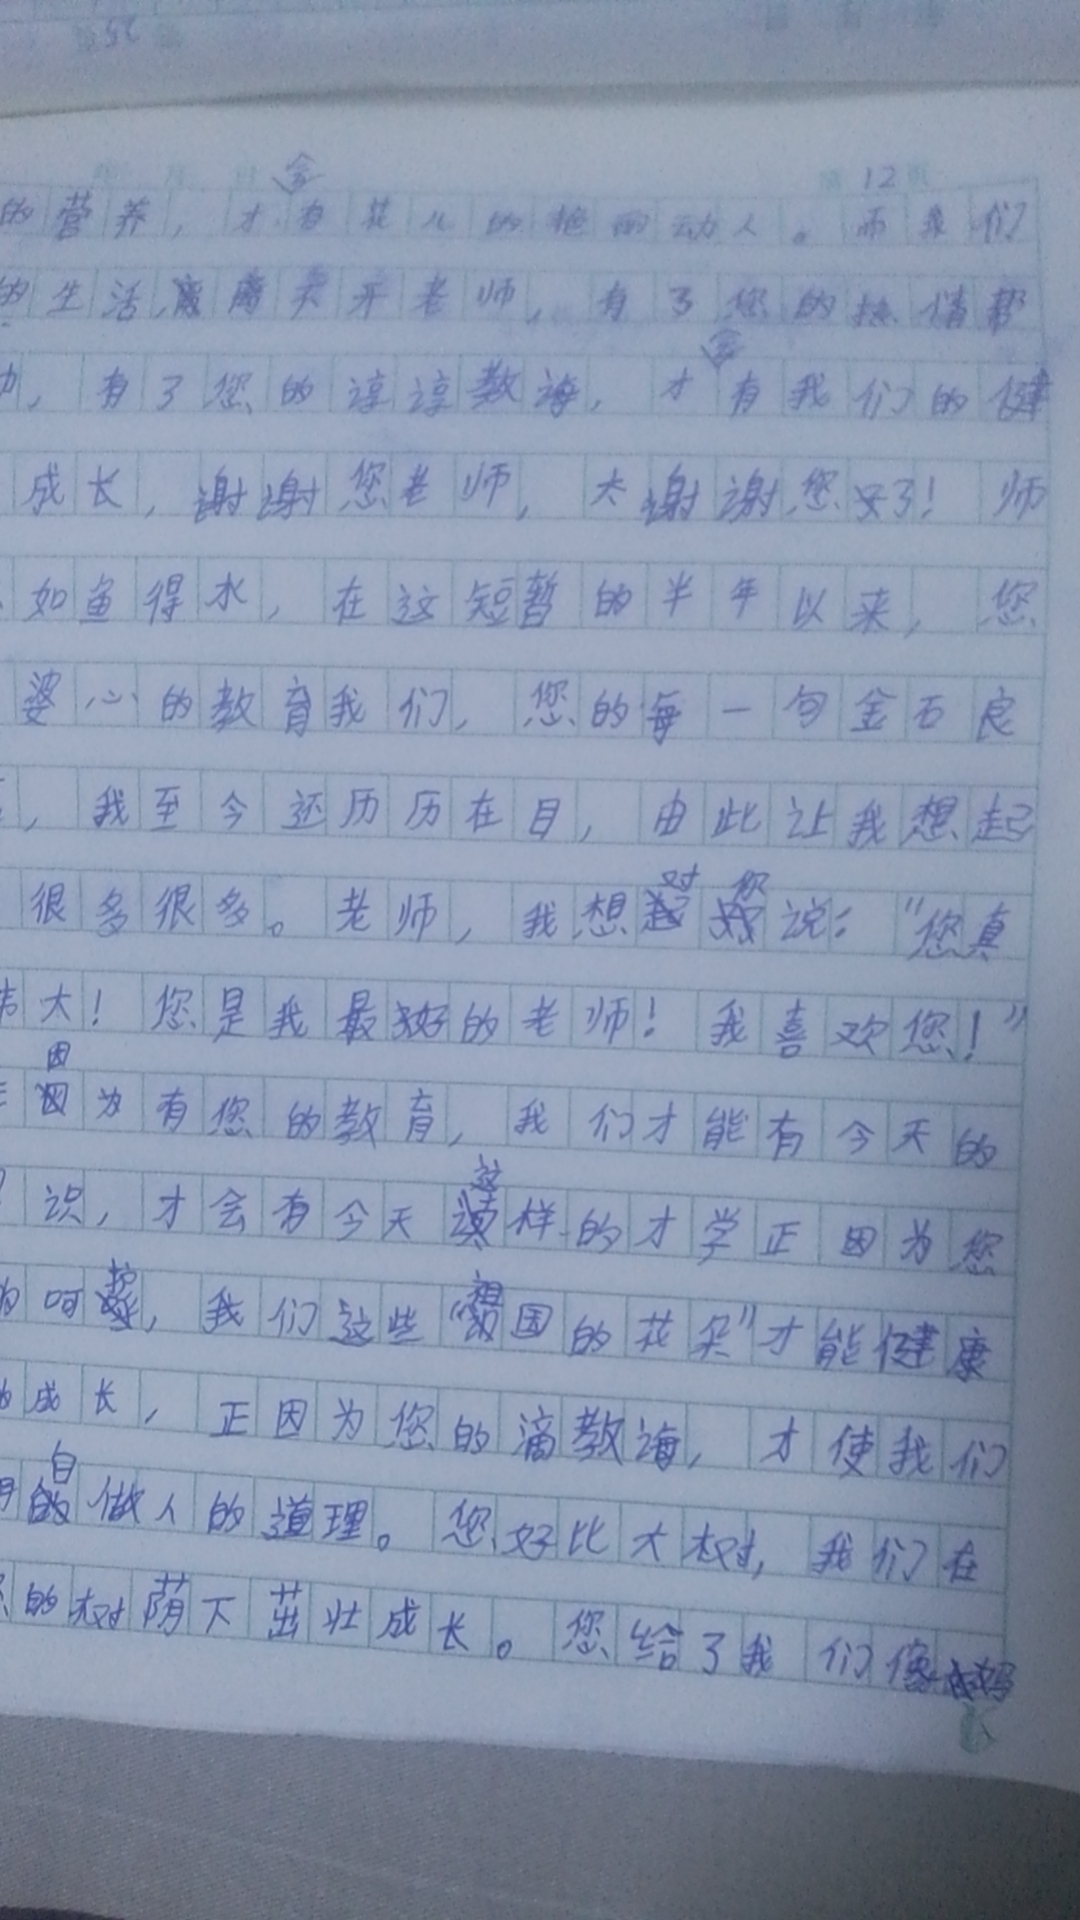 12
会
的营养，才有花儿的艳丽动人。而我们
的生活，离不开老师，有了您的热情帮
会
有了您的谆谆教海，才有我们的健
成长，谢谢您老师，太谢谢您了！师
如鱼得水，在这短暂的半年以来，您
婆心的教育我们，您的每一句金石良
，我至今还历历在目，由此让我想起
对您
很多很多。老师，我想说："您真
大！您是我最好的老师！我喜欢您！"
因
为有您的教育，我们才能有今天的
这
识，才会有今天样的才学正因为您
护 祖
的呵，我们这些"国的花朵"才能健康
的成长，正因为您的滴教海，才使我们
白
做人的道理。您好比大树，我们在
的树荫下茁壮成长。您给了我们像妈